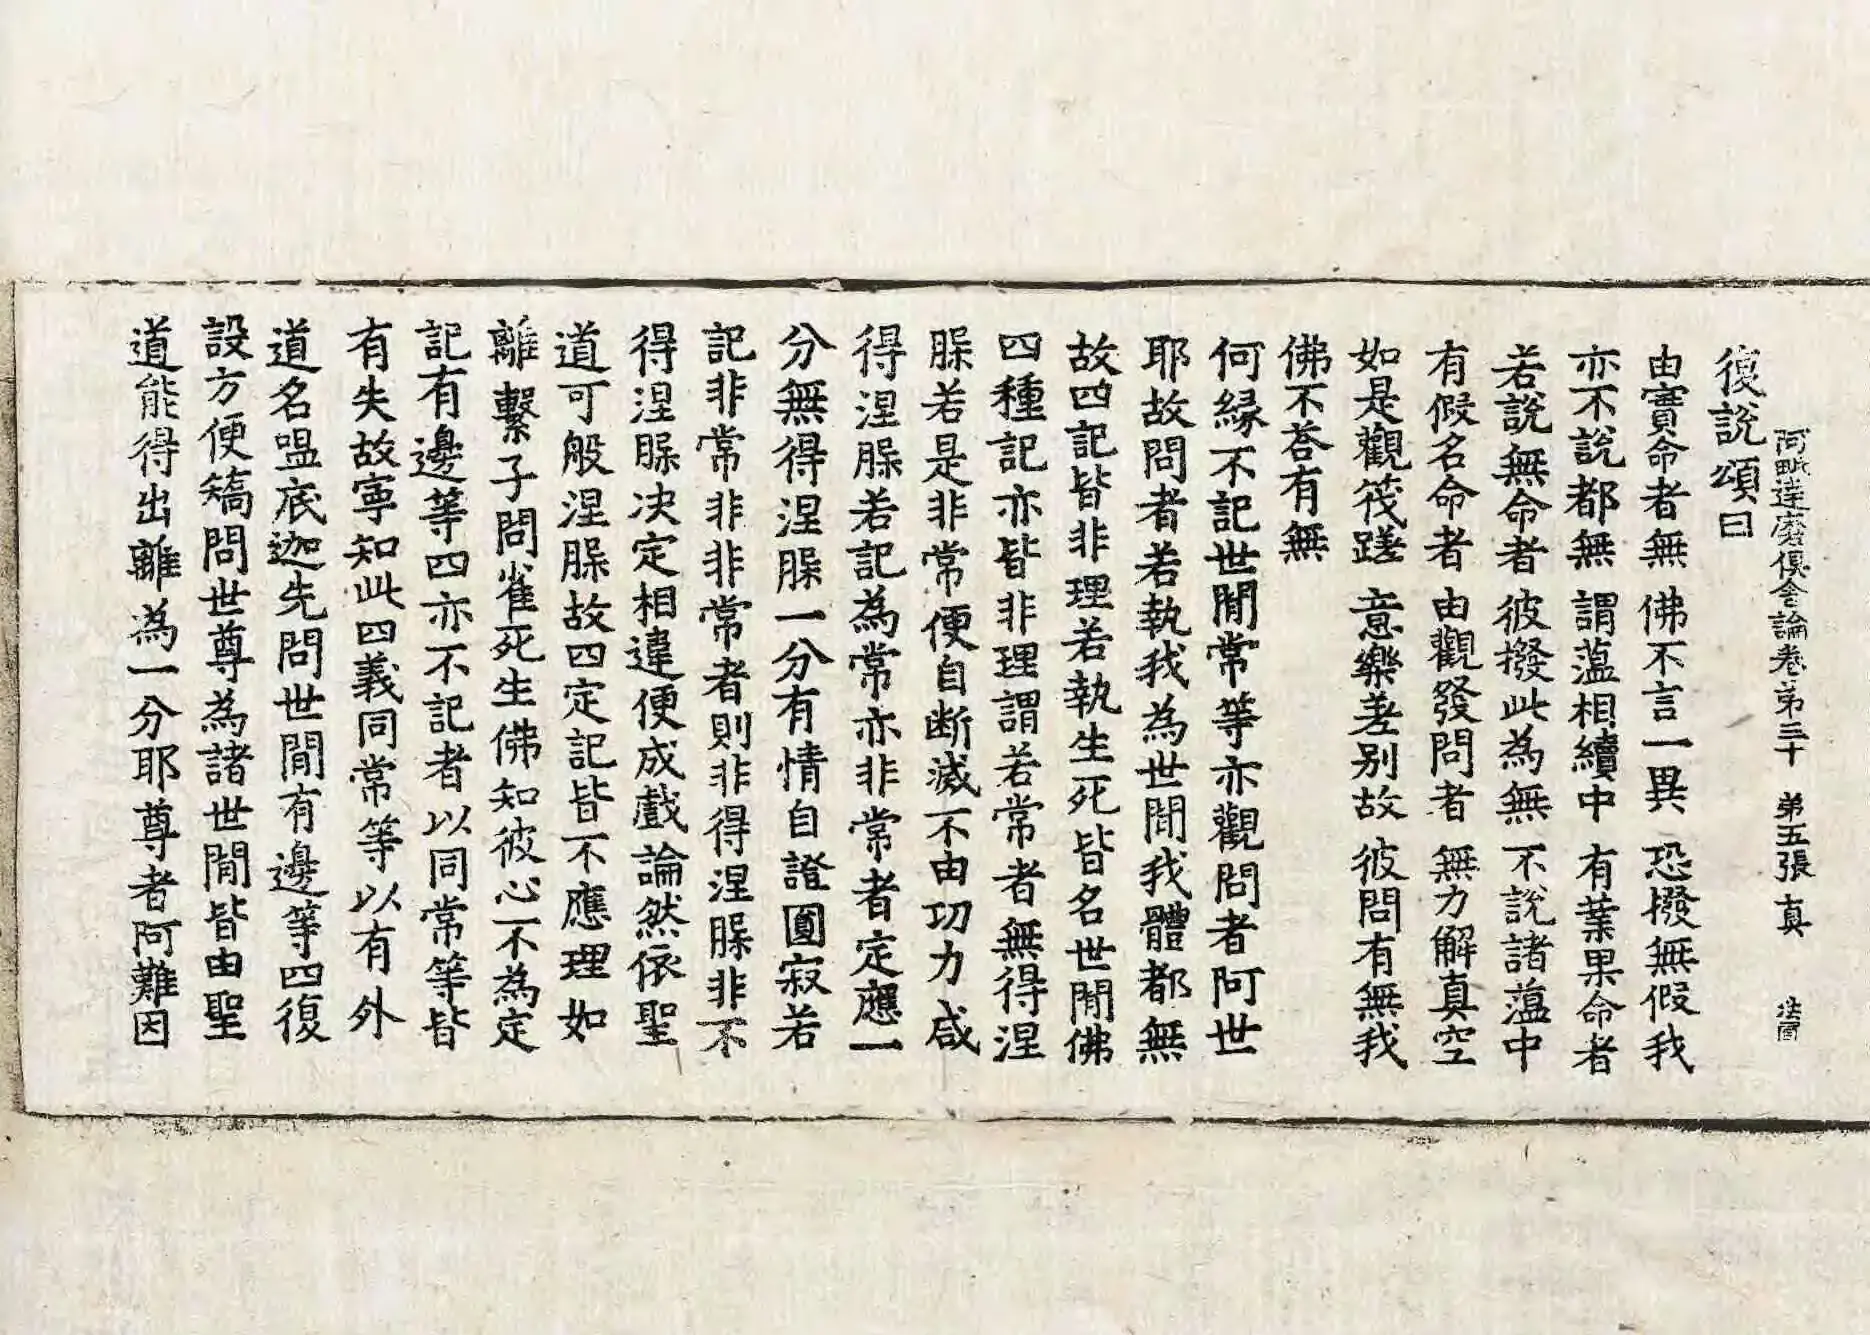 阿毗達磨俱舍論卷第三十 第五張 真
復說頌曰
由實命者無 佛不言一異 恐撥無假我
亦不說都無 謂蘊相續中 有業果命者
若說無命者 彼撥此為無 不說諸蘊中
有假名命者 由觀發問者 無力解真空
如是觀筏蹉 意樂差別故 彼問有無我
佛不荅有無
何緣不記世閒常等亦觀問者阿世
耶故問者若執我為世閒我體都無
故四記皆非理若執生死皆名世閒佛
四種記亦皆非理謂若常者無得涅
槃若是非常便自断滅不由功力咸
得涅槃若記為常亦非常者定應一
分無得涅槃一分有情自證圓寂若
記非常非非常者則非得涅槃非不
得涅槃决定相違便成戲論然依聖
道可般涅槃故四定記皆不應理如
離繫子問雀死生佛知彼心不為定
記有邊等四亦不記者以同常等皆
有失故寧知此四義同常等以有外
道名嗢底迦先問世閒有邊等四復
設方便矯問世尊為諸世閒皆由聖
道能得出離為一分耶尊者阿難因